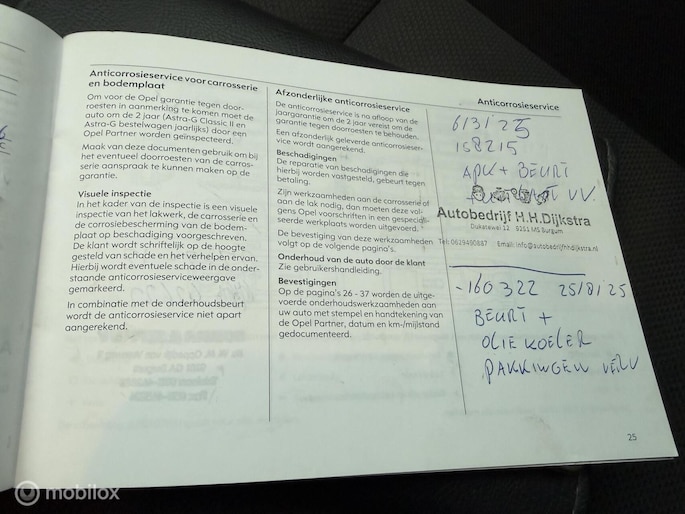 Anticorrosieservice voor carrosserie
en bodemplaat
Om voor de Opel garantie tegen door-
roesten in aanmerking te komen moet de
auto om de 2 jaar (Astra-G Classic II en
Astra-G bestelwagen jaarlijks) door een
Opel Partner worden geïnspecteerd.
Maak van deze documenten gebruik om bij
het eventueel doorroesten van de carros-
serie aanspraak te kunnen maken op de
garantie.
Visuele inspectie
In het kader van de inspectie is een visuele
inspectie van het lakwerk, de carrosserie en
de corrosiebescherming van de bodem-
plaat op beschadiging voorgeschreven.
De klant wordt schriftelijk op de hoogte
gesteld van schade en het verhelpen ervan.
Hierbij wordt eventuele schade in de onder-
staande anticorrosieserviceweergave
gemarkeerd.
In combinatie met de onderhoudsbeurt
wordt de anticorrosieservice niet apart
aangerekend.
Afzonderlijke anticorrosieservice
De anticorrosieservice is na afloop van de
jaargarantie om de 2 jaar vereist om de
garantie tegen doorroesten te behouden.
Een afzonderlijk geleverde anticorrosieser-
vice wordt aangerekend.
Beschadigingen
De reparatie van beschadigingen die
hierbij worden vastgesteld, gebeurt tegen
betaling.
Zijn werkzaamheden aan de carrosserie of
aan de lak nodig, dan moeten deze vol-
gens Opel voorschriften in een gespeciali-
seerde werkplaats worden uitgevoerd.
De bevestiging van deze werkzaamheden
volgt op de volgende pagina's.
Onderhoud van de auto door de klant
Zie gebruikershandleiding.
Bevestigingen
Op de pagina's 26 - 37 worden de uitge-
voerde onderhoudswerkzaamheden aan
uw auto met stempel en handtekening van
de Opel Partner, datum en km-/mijlstand
gedocumenteerd.
Anticorrosieservice
6/3/25
158215
APK + BEURT
VV.
Autobedrijf H.H.Dijkstra
Dukatewal 12 - 9251 MS Burgum
Tel: 0629490887 Email: info@autobedrijfhhdijkstra.nl
-160 322 25/8/25
BEURT +
OLIE KOELER
PAKKINGEN VERV
25
mobilox